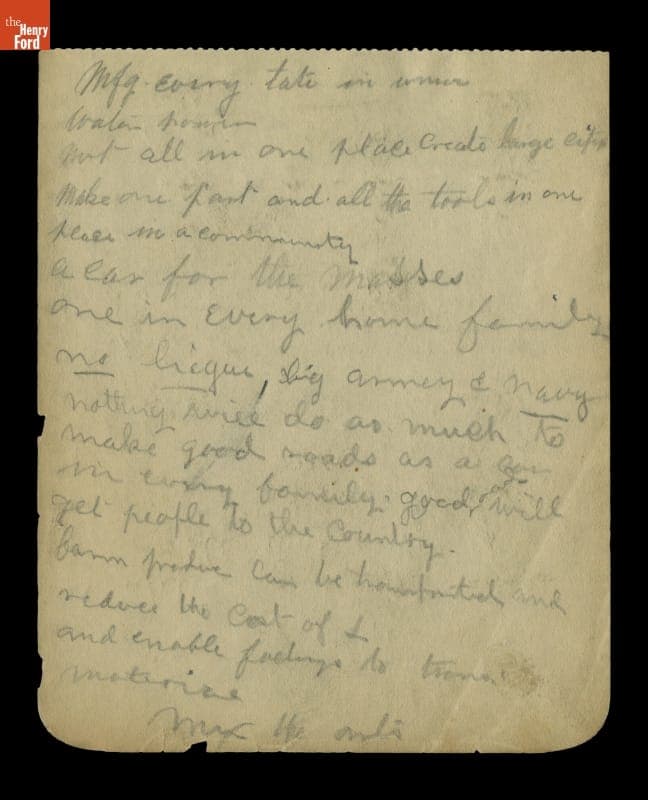 the
Henry
Ford
Mfg. every in
Water power
not all in one place Create large
Make one part and all the tools in one
place in a community
a car for the masses
one in every home family
no , big army & Navy
nothing will do as much to
make good roads as a car
in every family. good roads will
get people to the Country.
can be transported and
reduce the Cost of L
and enable to
Mix the